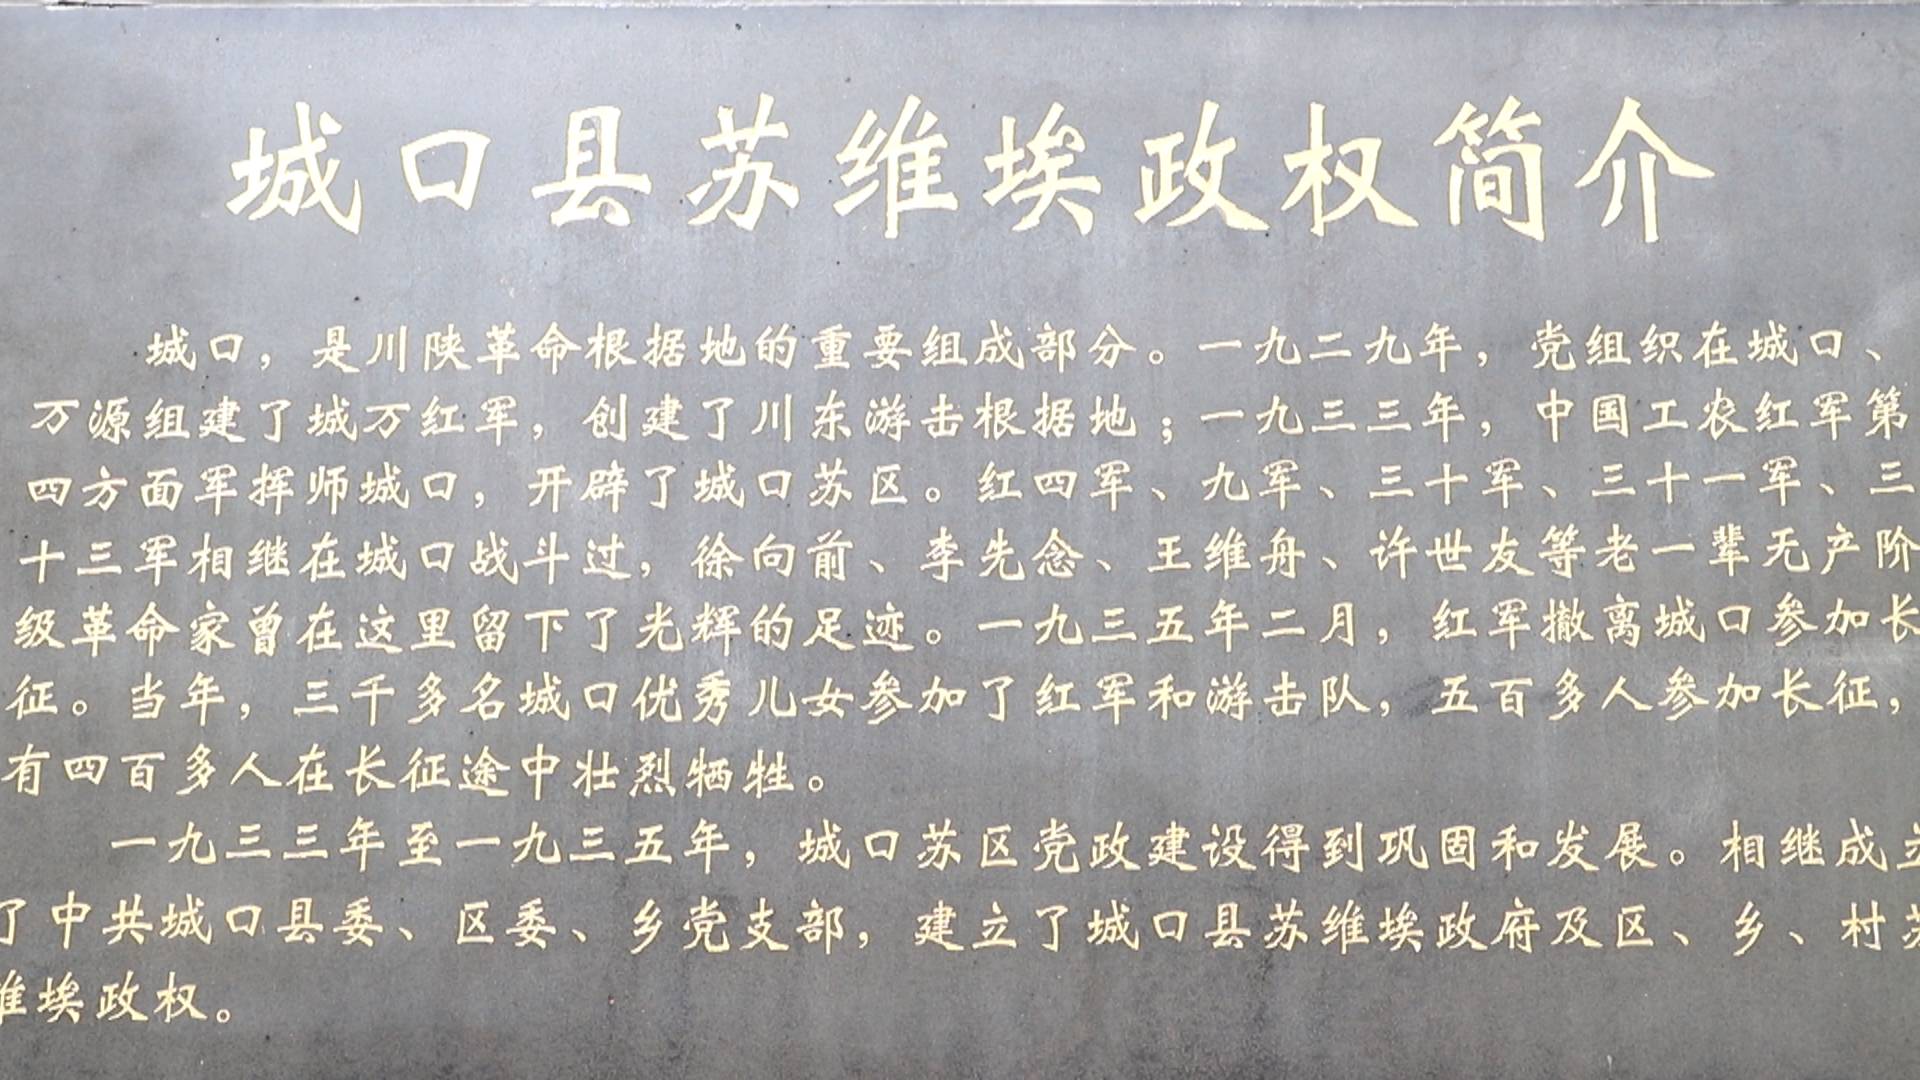 城口县苏维埃政权简介
城口，是川陕革命根据地的重要组成部分。一九二九年，党组织在城口、
万源组建了城万红军，创建了川东游击根据地；一九三三年，中国工农红军第
四方面军挥师城口，开辟了城口苏区。红四军、九军、三十军、三十一军、三
十三军相继在城口战斗过，徐向前、李先念、王维舟、许世友等老一辈无产阶
级革命家曾在这里留下了光辉的足迹。一九三五年二月，红军撤离城口参加长
征。当年，三千多名城口优秀儿女参加了红军和游击队，五百多人参加长征，
有四百多人在长征途中壮烈牺牲。
一九三三年至一九三五年，城口苏区党政建设得到巩固和发展。相继成立
了中共城口县委、区委、乡党支部，建立了城口县苏维埃政府及区、乡、村苏
维埃政权。